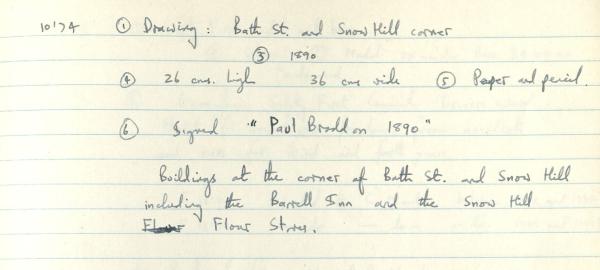 10'74 ① Drawing: Bath St. and Snow Hill corner
③ 1890
④ 26 cms. high 36 cms wide ⑤ Paper and pencil.
⑥ Signed "Paul Braddon 1890"
Buildings at the corner of Bath St. and Snow Hill
including the Barrell Inn and the Snow Hill
Flour Stores.